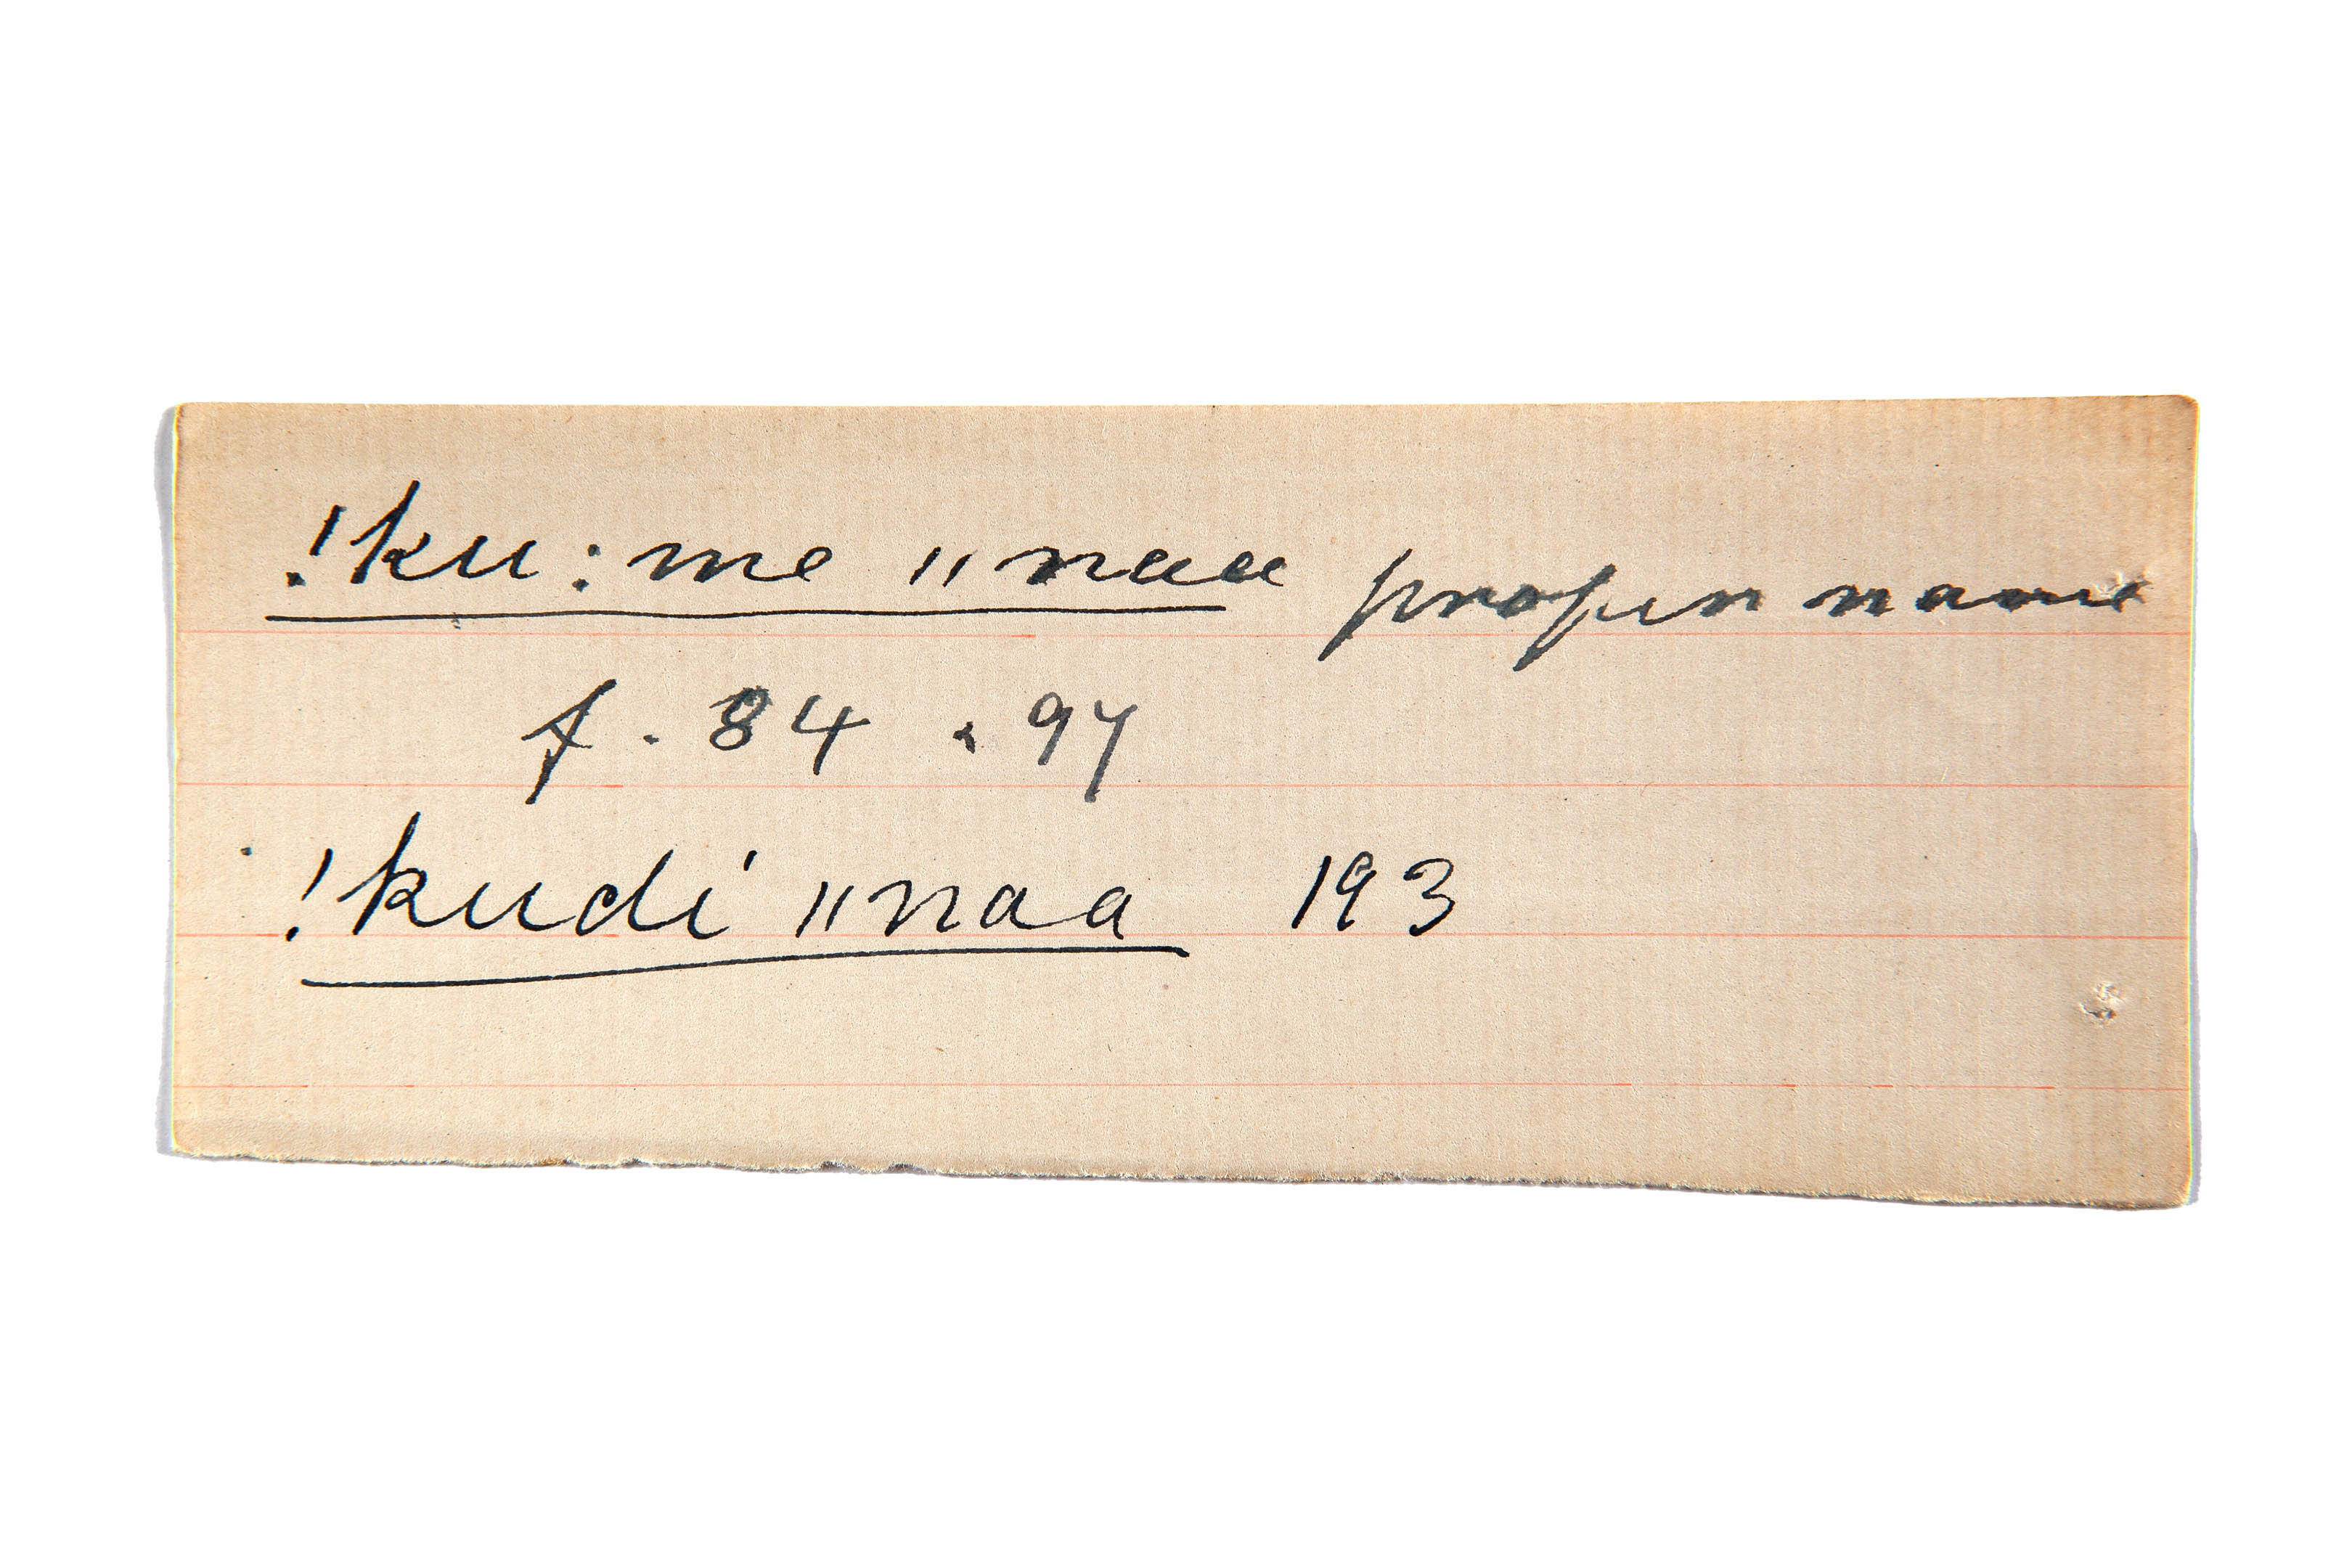 !ku:me ǁnaa proper name
f. 84. 97
!kudi ǁnaa 193